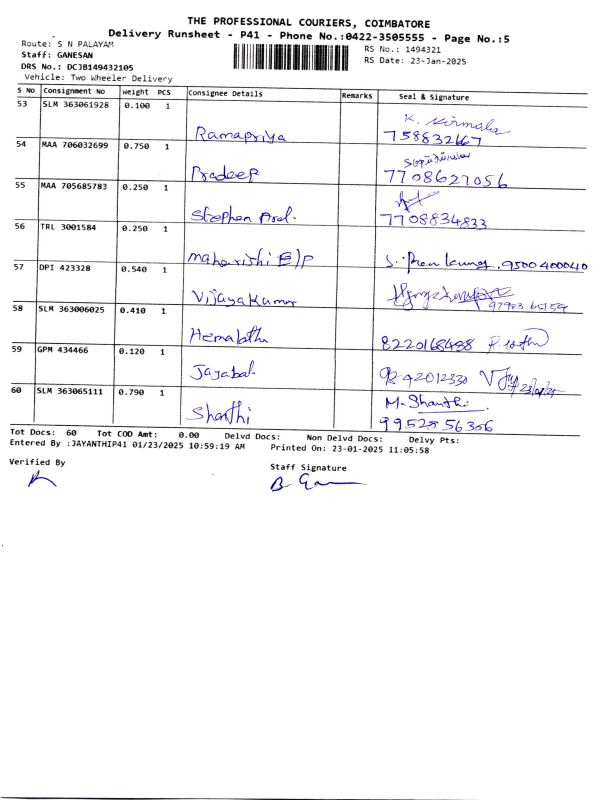 THE PROFESSIONAL COURIERS, COIMBATORE
Delivery Runsheet - P41 - Phone No.:0422-3505555 - Page No.:5
Route: S N PALAYAM
Staff: GANESAN
DRS No.: DCJB149432105
Vehicle: Two Wheeler Delivery
RS No.: 1494321
RS Date: 23-Jan-2025
S No Consignment No Weight PCS Consignee Details Remarks Seal & Signature
53 SLM 363061928 0.100 1 Ramapriya K. Nirmala
758832667
54 MAA 706032699 0.750 1 Pradeep
7708627056
55 MAA 705685783 0.250 1 Stephen Arul.
7708834833
56 TRL 3001584 0.250 1 maharishi B/P 9500400040
57 DPI 423328 0.540 1 Vijayakumar
58 SLM 363006025 0.410 1 Hemalatha 8220168488
59 GPM 434466 0.120 1 Jayabal.
60 SLM 363065111 0.790 1 Shanthi M. Shanthi.
Tot Docs: 60 Tot COD Amt: 0.00 Delvd Docs: Non Delvd Docs: Delvy Pts:
Entered By :JAYANTHIP41 01/23/2025 10:59:19 AM Printed On: 23-01-2025 11:05:58
Verified By
Staff Signature